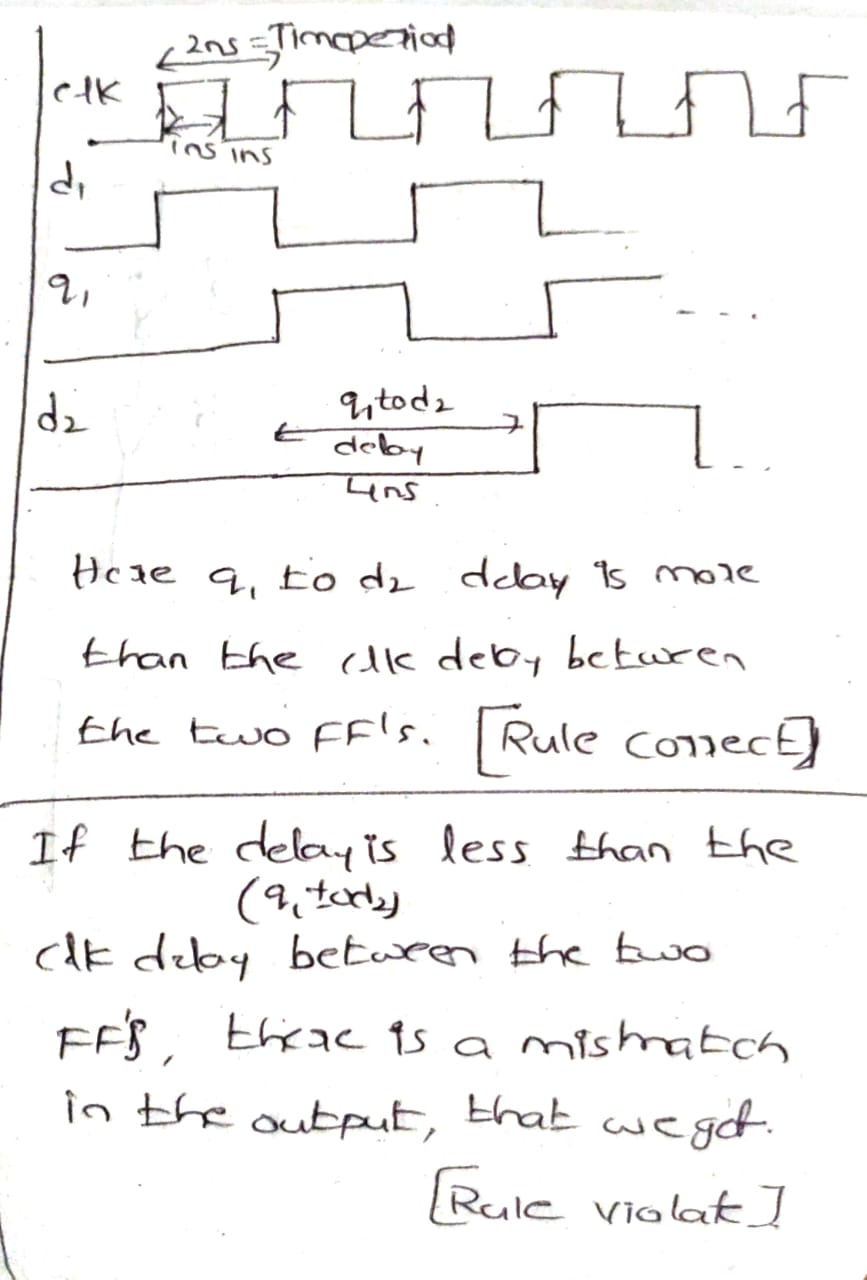 2ns = Timeperiod
clk
1ns 1ns
d1
q1
- - . .
d2
q1 to d2
delay
4ns
- - . .
Here q1 to d2 delay is more
than the clk delay between
the two FF's. [Rule correct]
If the delay is less than the
(q1 to d2)
clk delay between the two
FF's, there is a mismatch
in the output, that we got.
[Rule violat]